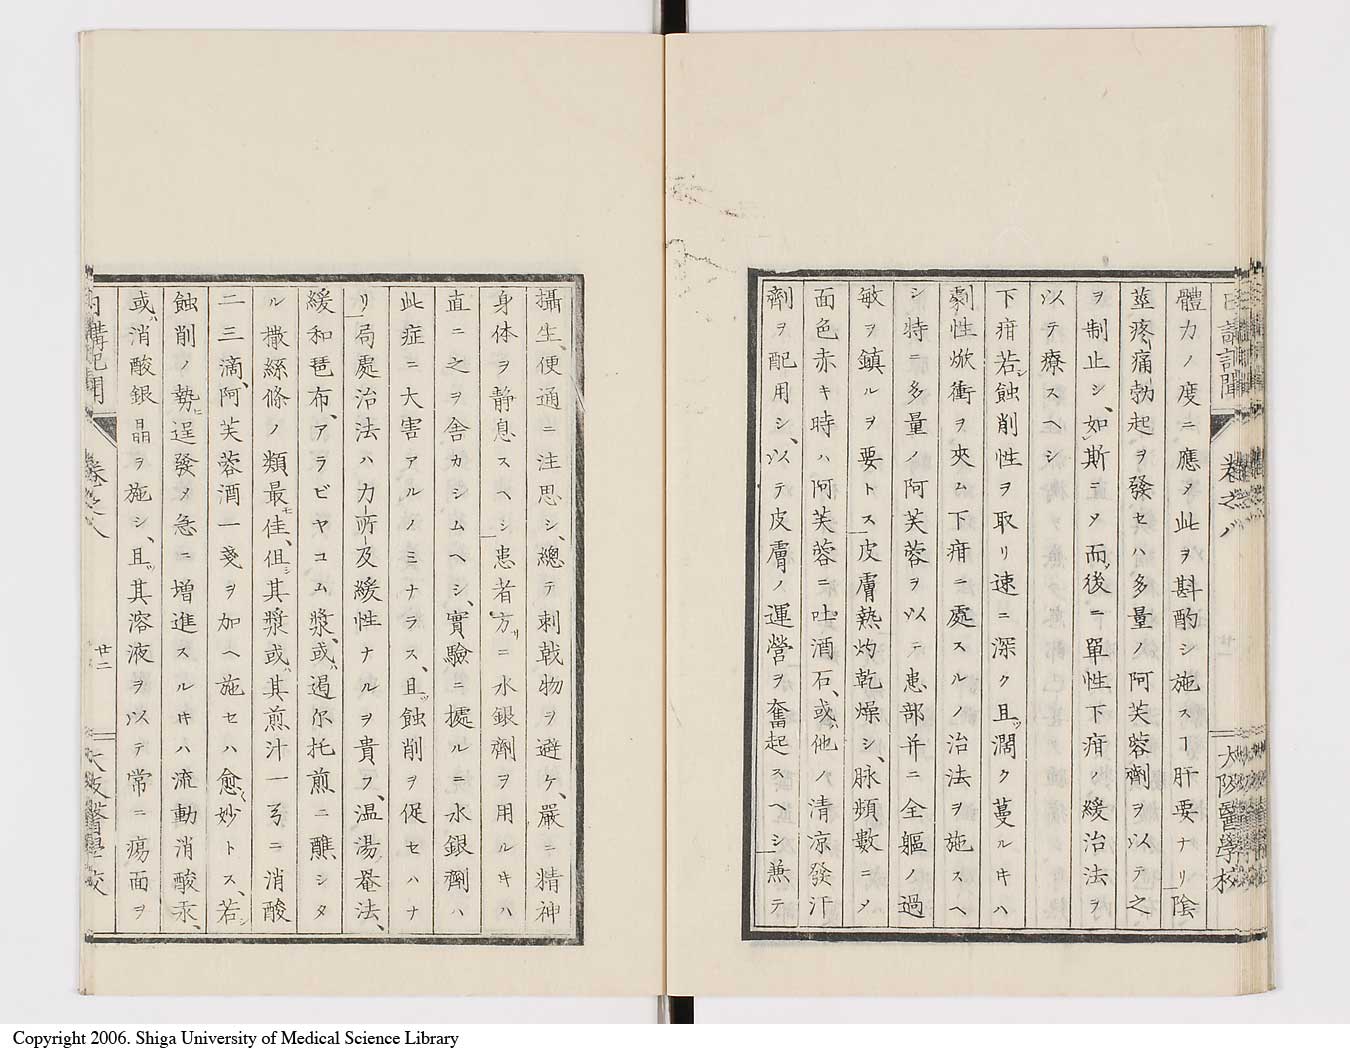 體力ノ度ニ應メ此ヲ斟酌シ施スヿ肝要ナリ陰
莖疼痛勃起ヲ發セハ多量ノ阿芙蓉劑ヲ以テ之
ヲ制止シ、如斯ニメ而後ニ單性下疳ノ緩治法ヲ
以テ療スヘシ
下疳若シ蝕削性ヲ取リ速ニ深ク且ツ濶ク蔓ルキハ
劇性焮衝ヲ夾ム下疳ニ處スルノ治法ヲ施スヘ
シ特ニ多量ノ阿芙蓉ヲ以テ患部并ニ全軀ノ過
敏ヲ鎮ルヲ要トス皮膚熱灼乾燥シ、脉頻數ニメ
面色赤キ時ハ阿芙蓉ニ吐酒石、或ハ他ノ清凉發汗
劑ヲ配用シ、以テ皮膚ノ運營ヲ奮起スヘシ兼テ
卷之八
大阪醫學校
攝生、便通ニ注思シ、總テ刺戟物ヲ避ケ、嚴ニ精神
身体ヲ静息スヘシ患者方リニ水銀劑ヲ用ルキハ
直ニ之ヲ舎カシムヘシ、實驗ニ據ルニ水銀劑ハ
此症ニ大害アルノミナラス、且ツ蝕削ヲ促セハナ
リ局處治法ハ力所及緩性ナルヲ貴ヲ、温湯罨法、
緩和琶布、アラビヤコム漿、或ハ遏尓托煎ニ醮シタ
ル撒絲條ノ類最モ佳、但シ其漿或ハ其煎汁一弓ニ消酸
二三滴、阿芙蓉酒一戔ヲ加ヘ施セハ愈〻妙トス、若シ
蝕削ノ勢ヒ逞發メ急ニ増進スルキハ流動消酸汞、
或ハ消酸銀晶ヲ施シ、且ツ其溶液ヲ以テ常ニ瘍面ヲ
卷之八
廿二
大阪醫學校
Copyright 2006. Shiga University of Medical Science Library